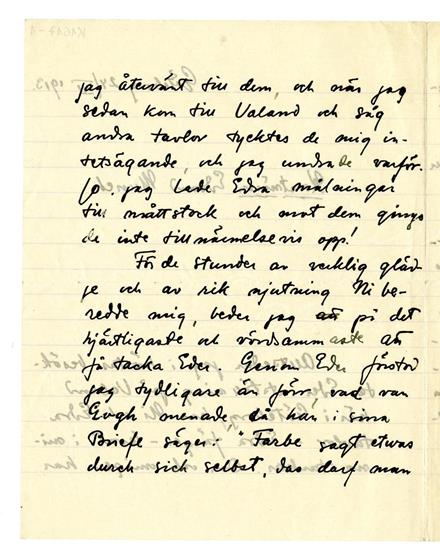 jag återvänt till dem, och när jag
sedan kom till Valand och såg
andra tavlor tycktes de mig in-
tetsägande, och jag undrade varför.
Jo, jag lade Edra målningar
till måttstock och mot dem gingo
de inte tillnärmelsevis opp!
För de stunder av verklig gläd-
je och av rik njutning Ni be-
redde mig, beder jag att på det
hjärtligaste och vördsammaste att
få tacka Eder. Genom Eder förstod
jag tydligare än förr, vad van
Gogh menade, då han i sina
Briefe säger: "Farbe sagt etwas
durch sich selbst, das darf man